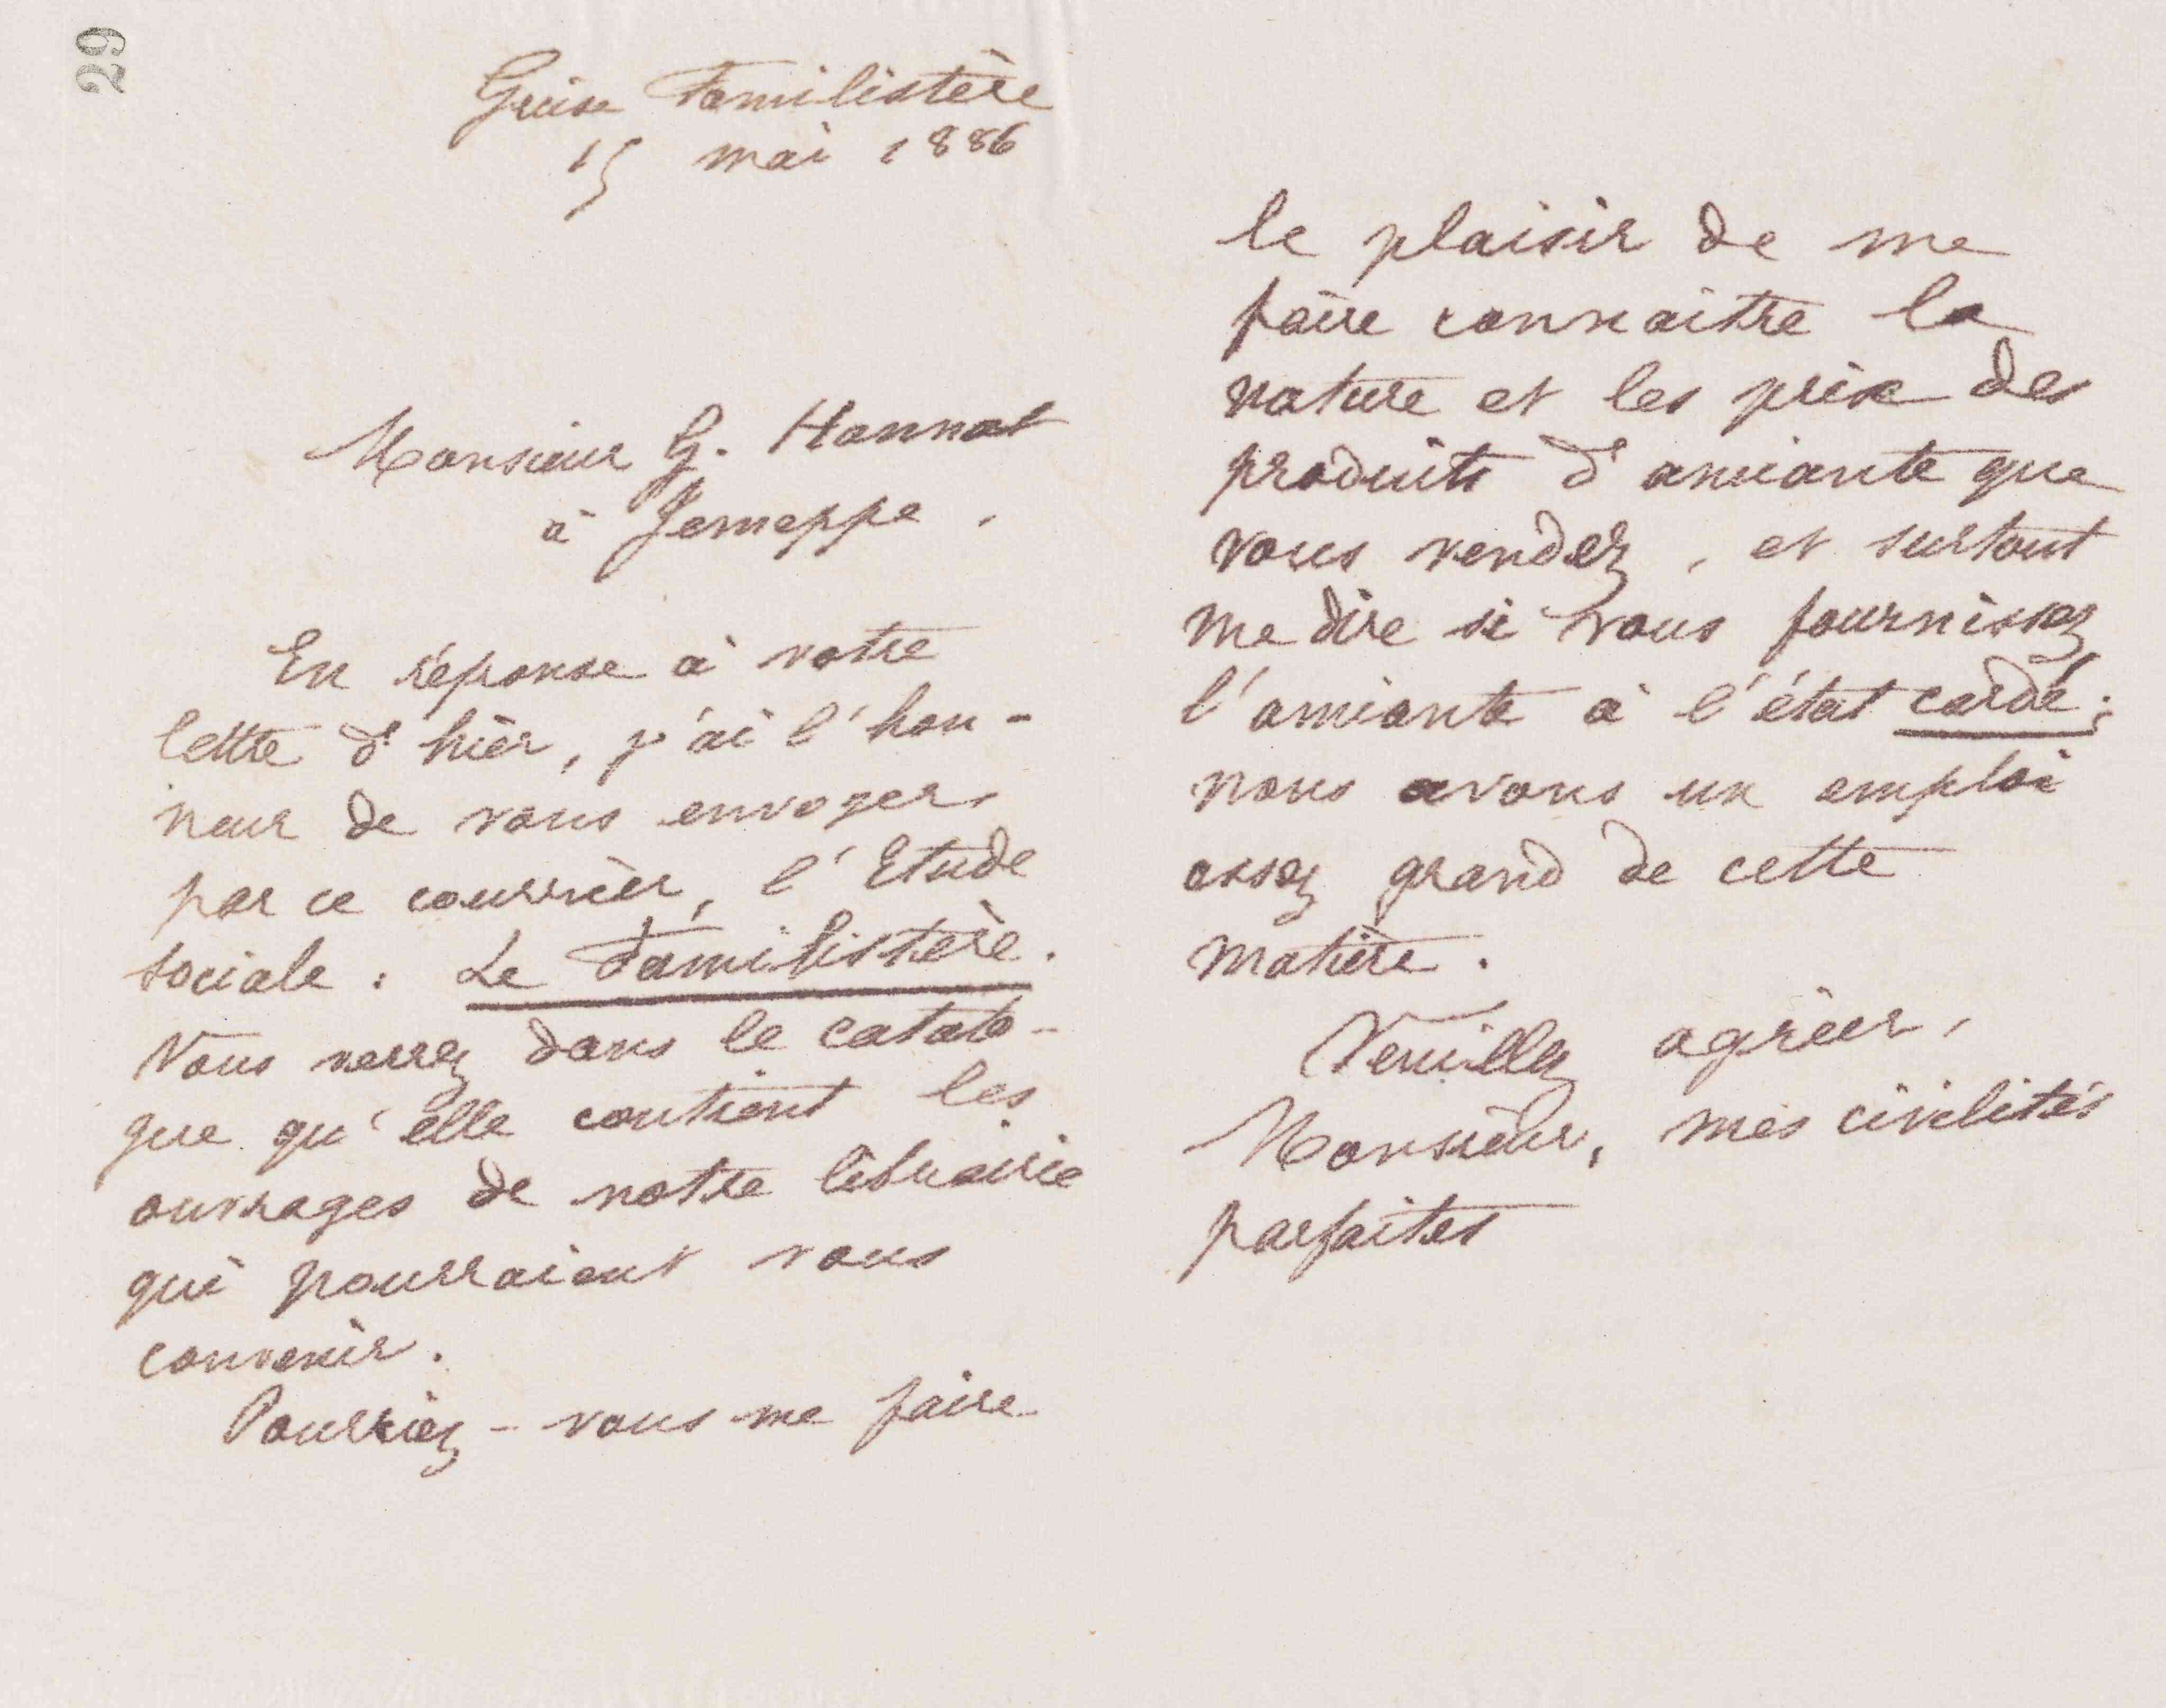 29
Guise Familistère
15 mai 1886
Monsieur G. Hannot
à Jemeppe.
En réponse à votre
lettre d'hier, j'ai l'hon-
neur de vous envoyer
par ce courrier, l'Etude
sociale : Le Familistère.
Vous verrez dans le catalo-
gue qu'elle contient les
ouvrages de notre librairie
qui pourraient vous
convenir.
Pourriez-vous me faire
le plaisir de me
faire connaitre la
nature et les prix des
produits d'amiante que
vous vendez, et surtout
me dire si vous fournissez
l'amiante à l'état cardé;
nous avons un emploi
assez grand de cette
matière.
Veuillez agréer,
Monsieur, mes civilités
parfaites